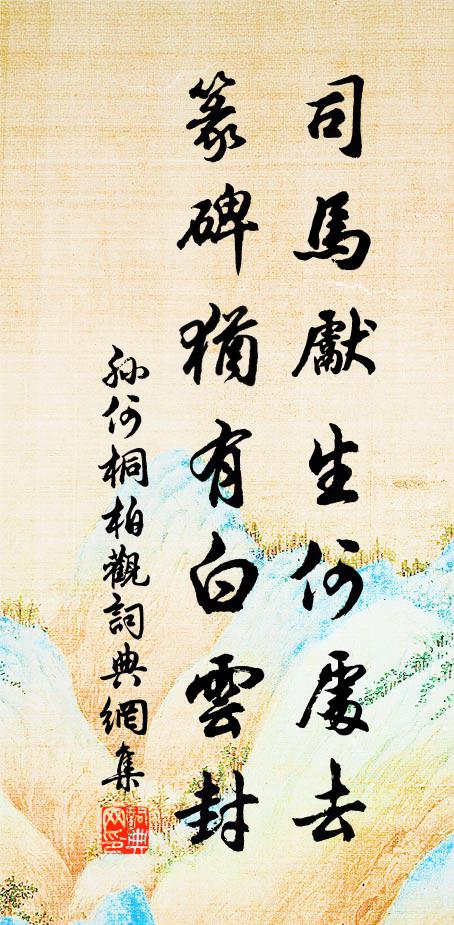 司馬獻生何處去
篆碑猶有白雲封
孫何桐柏觀詞典網集
詞典网印